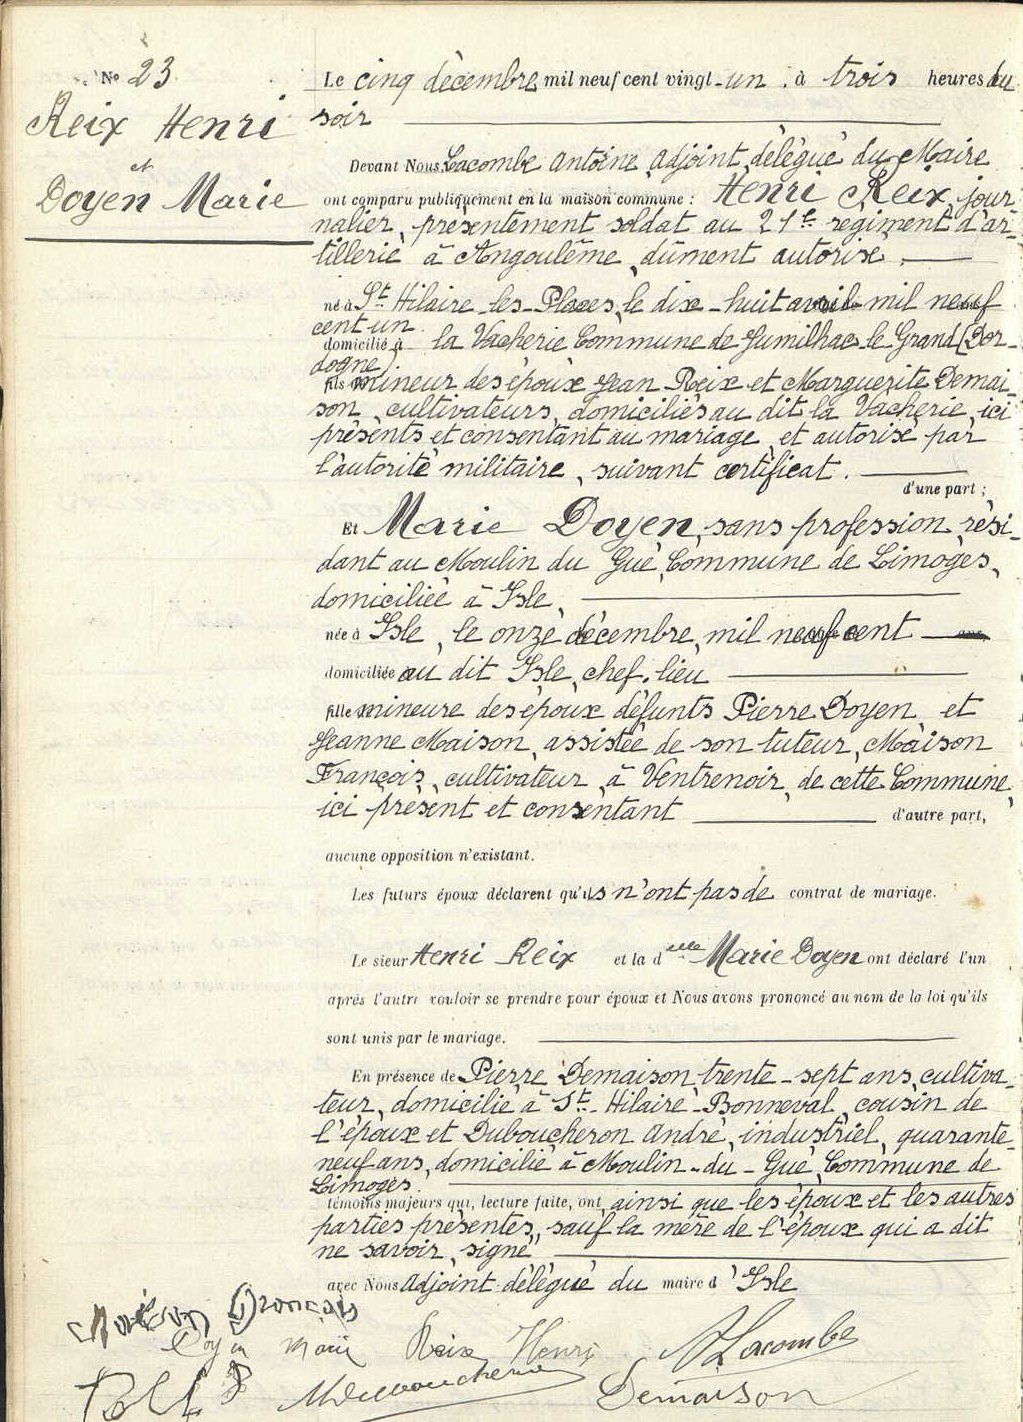 N° 23
Reix Henri
et
Doyen Marie
Le cinq décembre mil neuf cent vingt-un, à trois heures du
soir
Devant Nous, Lacombe Antoine, Adjoint, délégué du Maire
ont comparu publiquement en la maison commune : Henri Reix, jour
nalier, présentement soldat au 21e régiment d'ar-
tillerie à Angoulême, dûment autorisé,
né à St Hilaire-les-Places, le dix-huit avril mil neuf
cent un
domicilié à la Vacherie Commune de Jumilhac-le Grand (Dor-
dogne)
fils mineur des époux Jean Reix et Marguerite Demai
son, cultivateurs, domiciliés au dit la Vacherie, ici
présents et consentant au mariage, et autorisé par
l'autorité militaire, suivant certificat.
d'une part ;
Et Marie Doyen, sans profession, rési-
dant au Moulin du Gué, Commune de Limoges,
domiciliée à Isle,
née à Isle, le onze décembre, mil neuf cent
domiciliée au dit Isle, chef-lieu
fille mineure des époux défunts Pierre Doyen, et
Jeanne Maison, assistée de son tuteur, Maison
François, cultivateur, à Ventrenoir, de cette Commune,
ici présent et consentant d'autre part,
aucune opposition n'existant.
Les futurs époux déclarent qu'ils n'ont pas de contrat de mariage.
Le sieur Henri Reix et la delle Marie Doyen ont déclaré l'un
après l'autre vouloir se prendre pour époux et Nous avons prononcé au nom de la loi qu'ils
sont unis par le mariage.
En présence de Pierre Demaison, trente-sept ans, cultiva-
teur, domicilié à St-Hilaire-Bonneval, cousin de
l'époux et Duboucheron André, industriel, quarante-
neuf ans, domicilié à Moulin-du-Gué, Commune de
Limoges.
témoins majeurs qui, lecture faite, ont ainsi que les époux et les autres
parties présentes, sauf la mère de l'époux qui a dit
ne savoir, signé
avec Nous Adjoint délégué du maire d'Isle
Maison François
Doyen Marie Reix Henri A Lacombe
Duboucheron Demaison